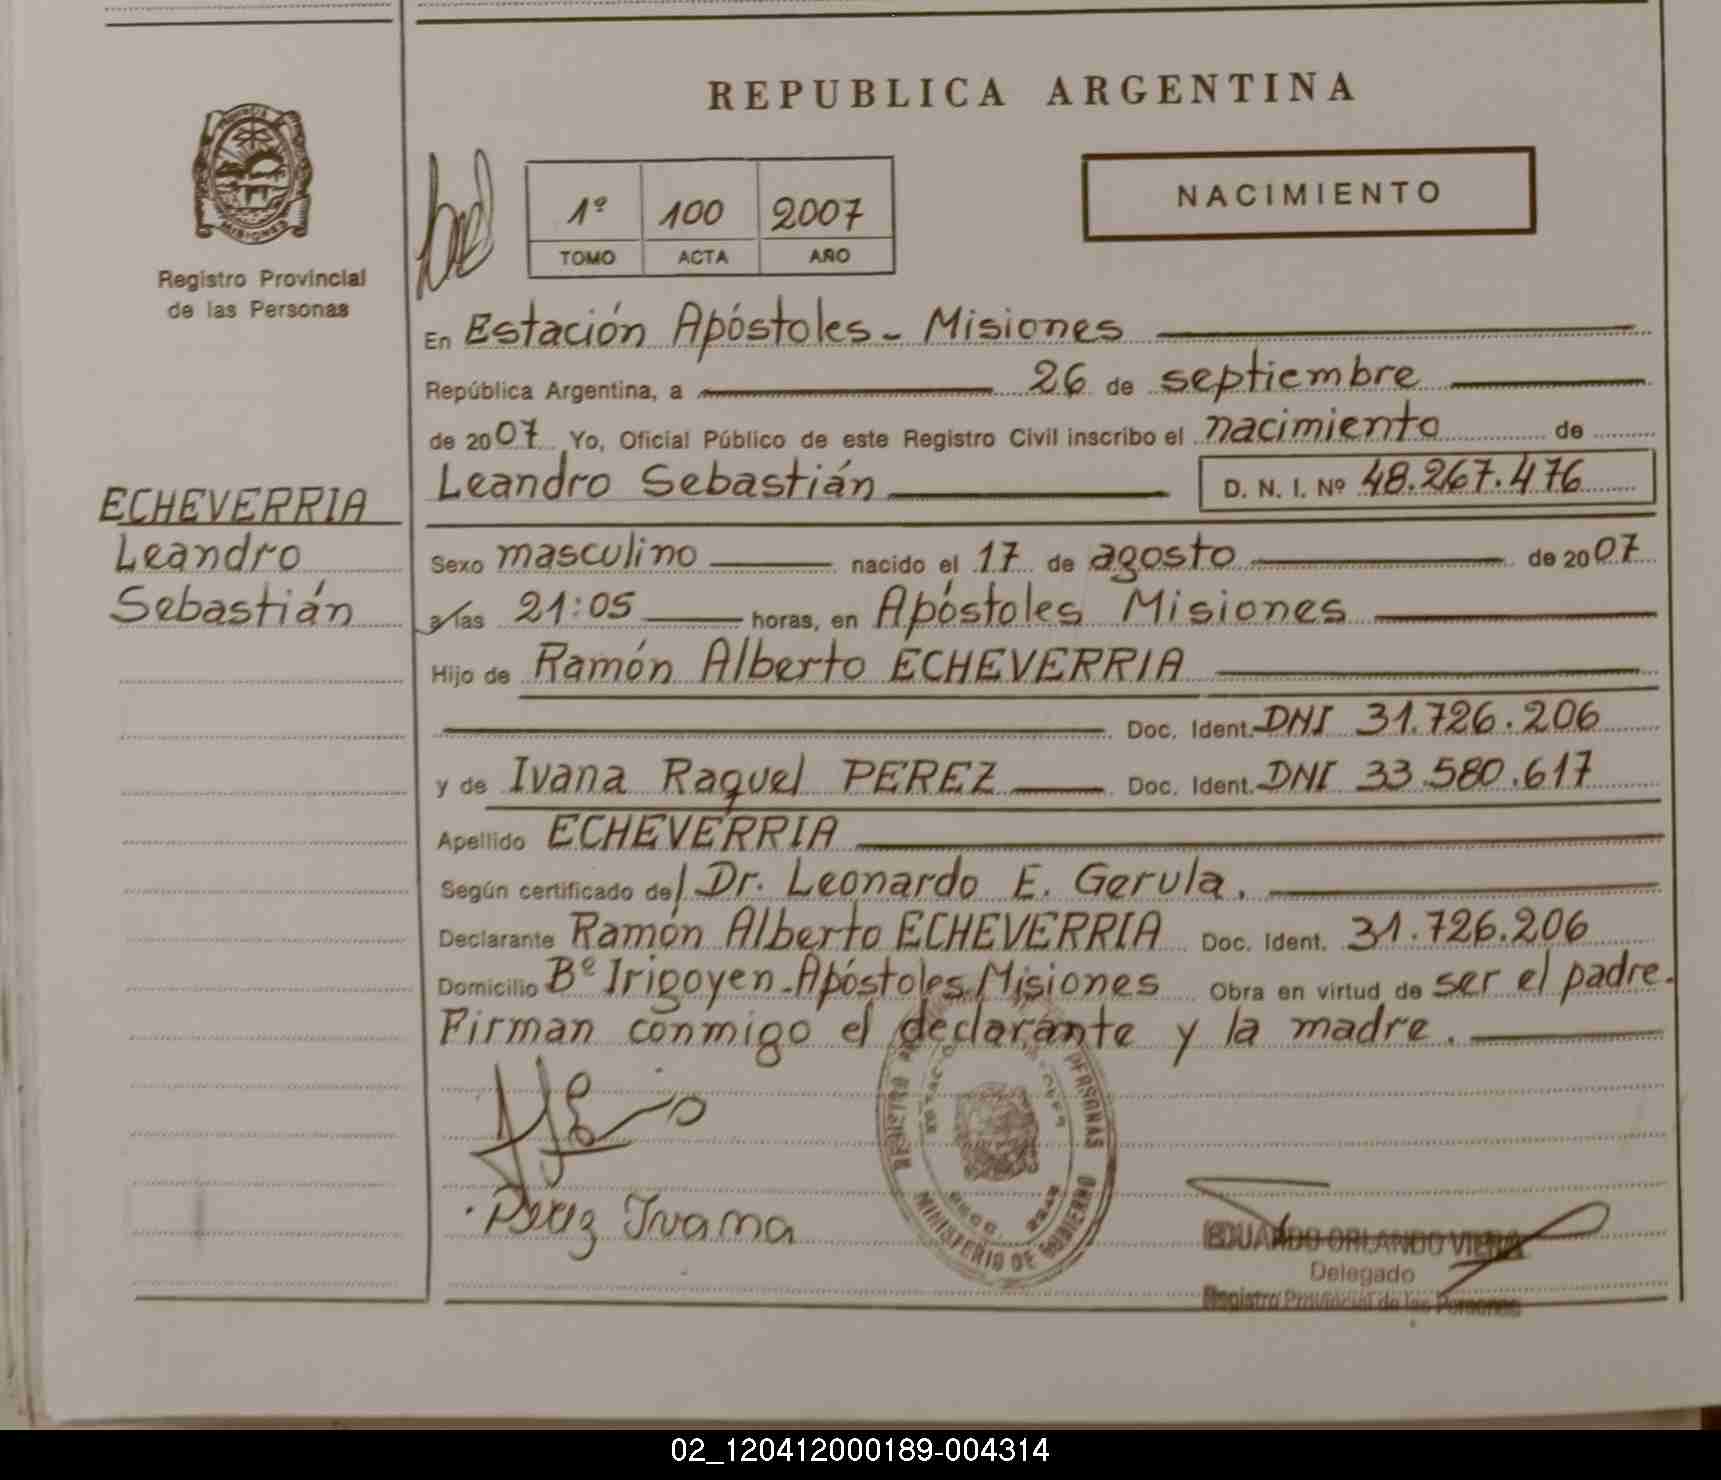 REPUBLICA ARGENTINA
PROVINCIA
MISIONES
Registro Provincial
de las Personas
1º 100 2007
TOMO ACTA AÑO
NACIMIENTO
En Estación Apóstoles - Misiones
República Argentina, a 26 de septiembre
de 2007 Yo, Oficial Público de este Registro Civil inscribo el nacimiento de
Leandro Sebastián D. N. I. Nº 48.267.476
ECHEVERRIA
Leandro
Sebastián
Sexo masculino nacido el 17 de agosto de 2007
a/las 21:05 horas, en Apóstoles Misiones
Hijo de Ramón Alberto ECHEVERRIA
Doc. Ident. DNI 31.726.206
y de Ivana Raquel PEREZ Doc. Ident. DNI 33.580.617
Apellido ECHEVERRIA
Según certificado del Dr. Leonardo E. Gerula.
Declarante Ramón Alberto ECHEVERRIA Doc. Ident. 31.726.206
Domicilio Bº Irigoyen - Apóstoles Misiones Obra en virtud de ser el padre.
Firman conmigo el declarante y la madre.
PERSONAS
MINISTERIO DE GOBIERNO
Perez Ivana
EDUARDO ORLANDO VIERA
Delegado
Registro Provincial de las Personas
02_120412000189-004314